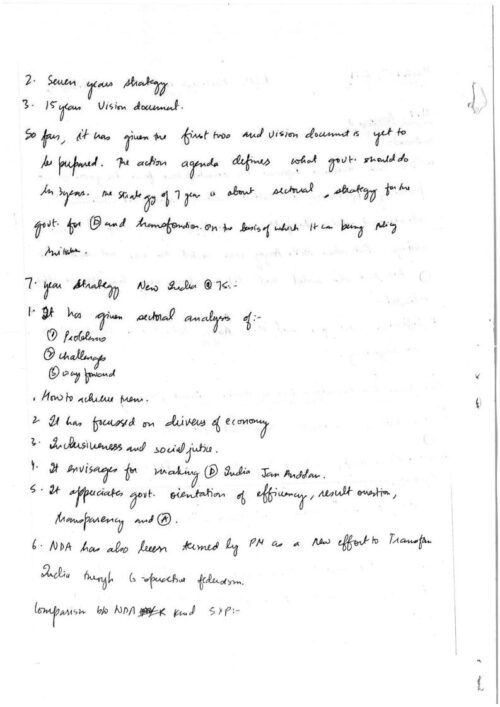 2. Seven years strategy
3. 15 years Vision document.
So far, it has given the first two and vision document is yet to
be prepared. The action agenda defines what govt. should do
in 3 years. The strategy of 7 year is about sectoral strategy for the
govt. for (D) and transformation. On the basis of which it can bring policy
7. year strategy New India @ 75.-
1. It has given sectoral analysis of:-
① Problems
② challenges
③ way forward
. How to achieve them.
2. It has focussed on drivers of economy
3. Inclusiveness and social justice.
4. It envisages for making (D) India Jan Andolan.
5. It appreciates govt. orientation of efficiency, result
transparency and (A).
6. NDA has also been termed by PM as a new effort to Transform
India through Co-operative federalism.
Comparison b/w NDA and SYP:-